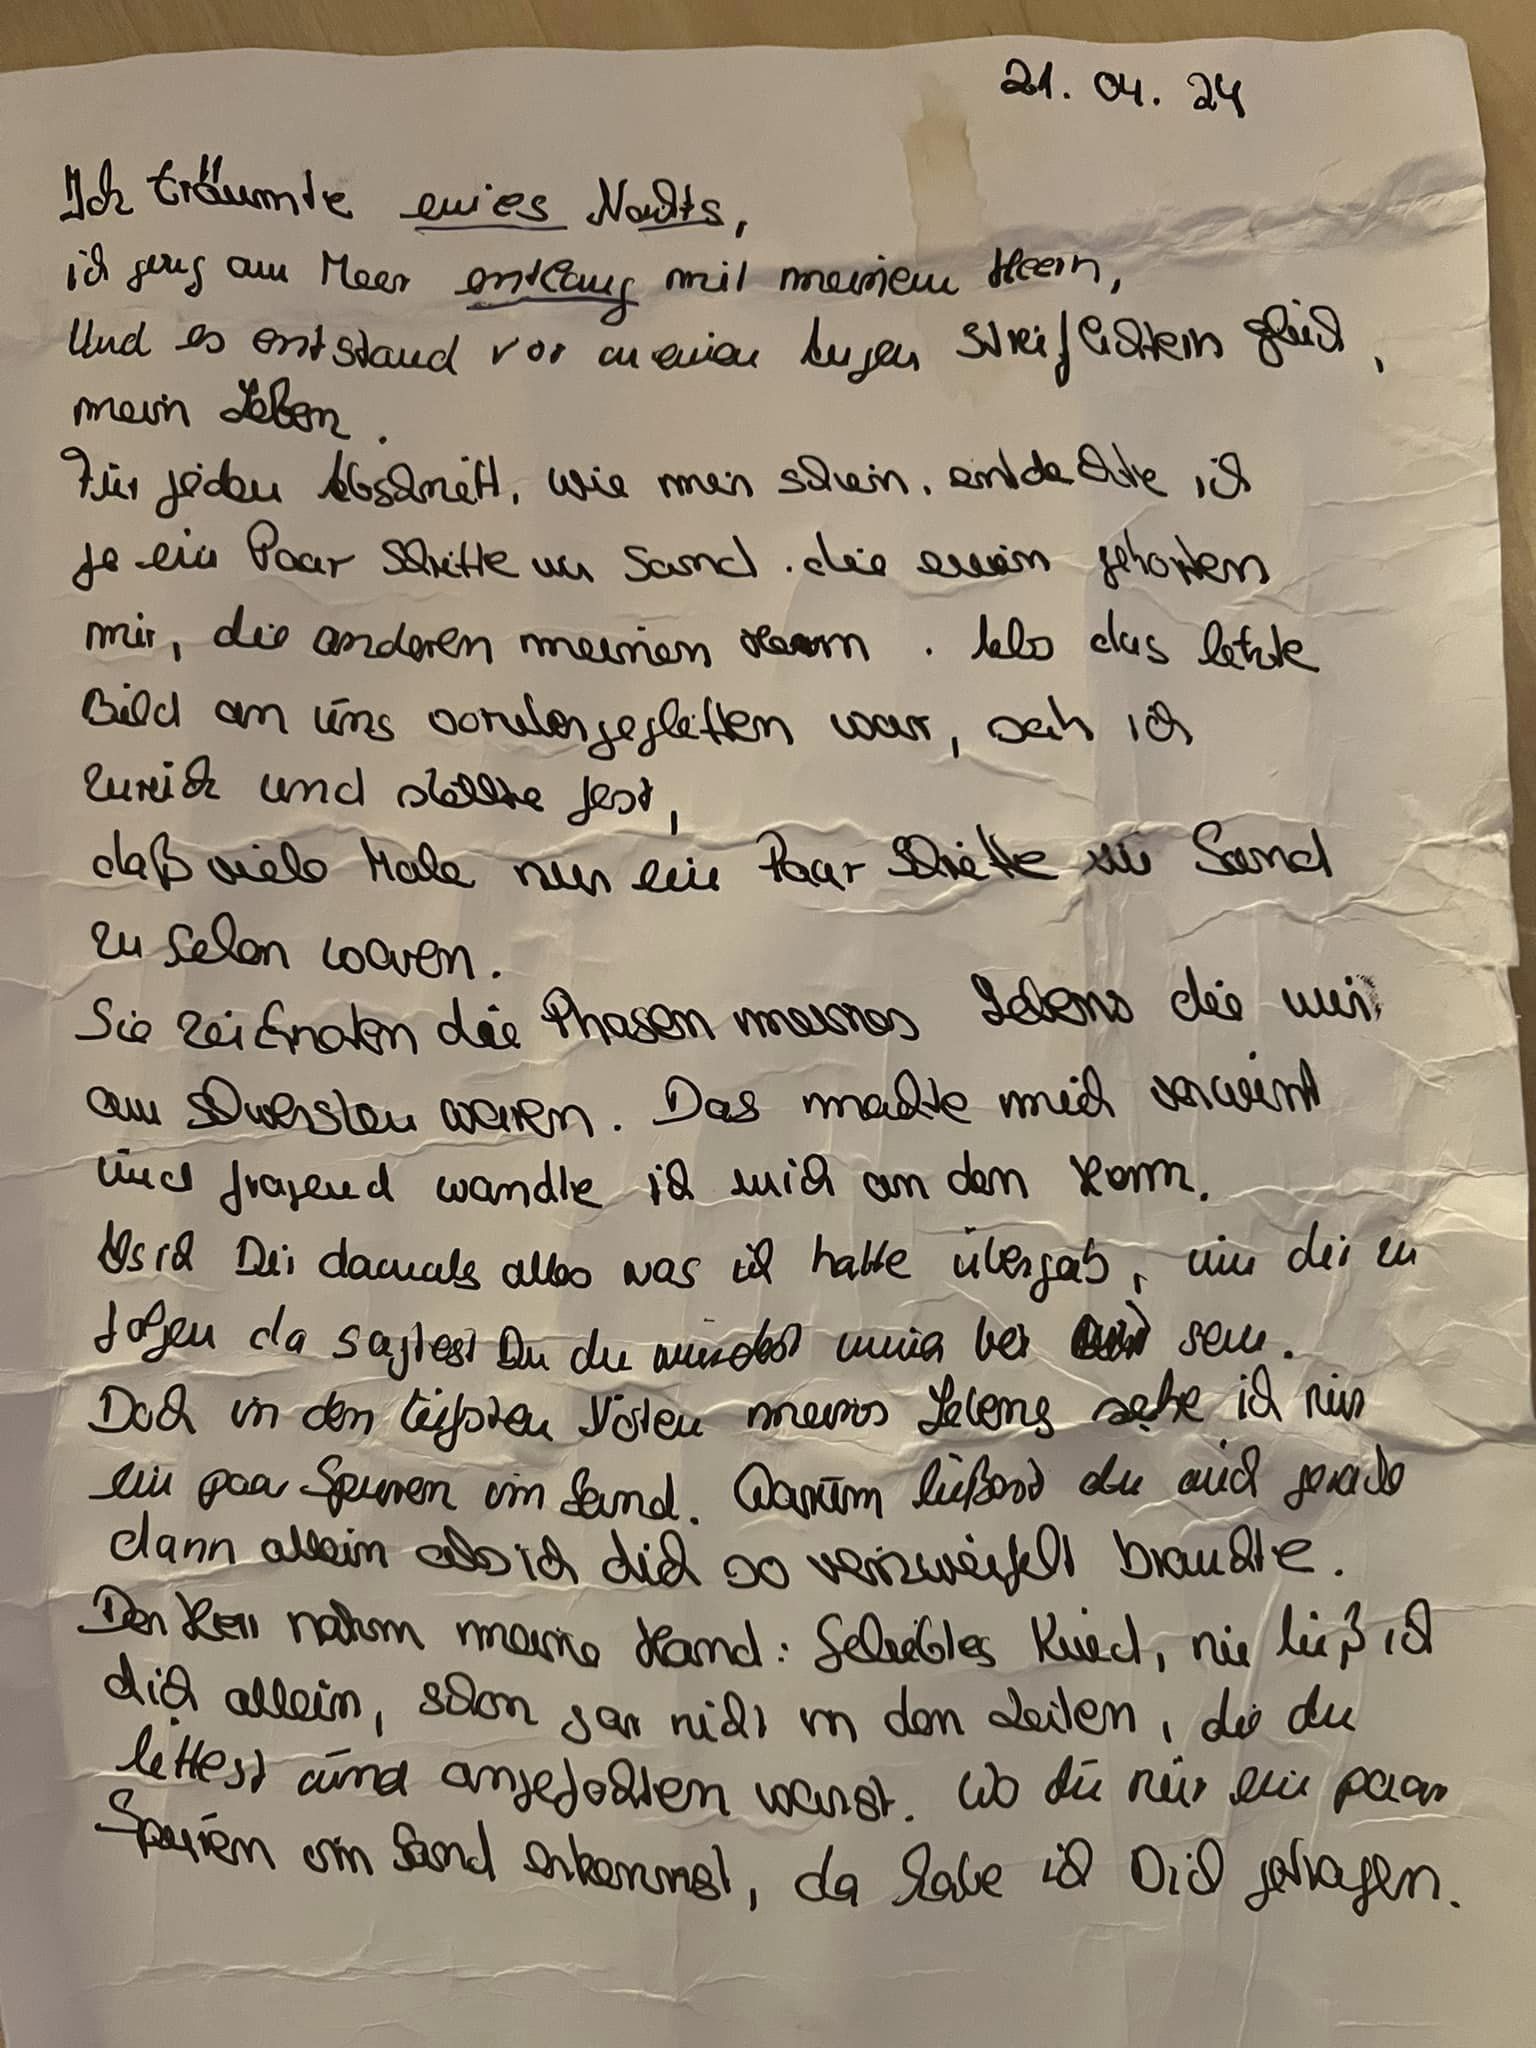 21. 04. 24
Ich träumte eines Nachts,
ich ging am Meer entlang mit meinem Herrn,
Und es entstand vor meinen Augen Streiflichtern gleich,
mein Leben.
Für jeden Abschnitt, wie mein schein. entdeckte ich
je ein Paar Schritte im Sand. die einen gehörten
mir, die anderen meinen Herrn. Als das letzte
Bild an uns vorübergeglitten war, sah ich
zurück und stellte fest,
daß viele Male nur ein Paar Schritte im Sand
zu sehen waren.
Sie zeichneten die Phasen meines Lebens die mir
am schwersten waren. Das machte mich verwirrt
und fragend wandte ich mich an den Herrn.
Als ich Dir damals alles was ich hatte übergab, um dir zu
folgen da sagtest Du du würdest immer bei mir sein.
Doch in den tiefsten Nöten meines Lebens sehe ich nur
ein paar Spuren im Sand. Warum ließest du mich gerade
dann allein als ich dich so verzweifelt brauchte.
Der Herr nahm meine Hand: Geliebtes Kind, nie ließ ich
dich allein, schon gar nicht in den Zeiten, die du
littest und angefochten warst. Wo du nur ein paar
Spuren im Sand erkennst, da habe ich Dich getragen.